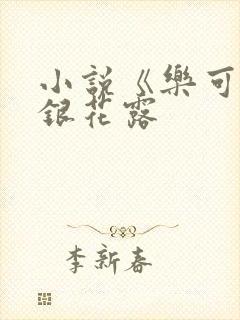 小説《樂可
銀花露
李新春